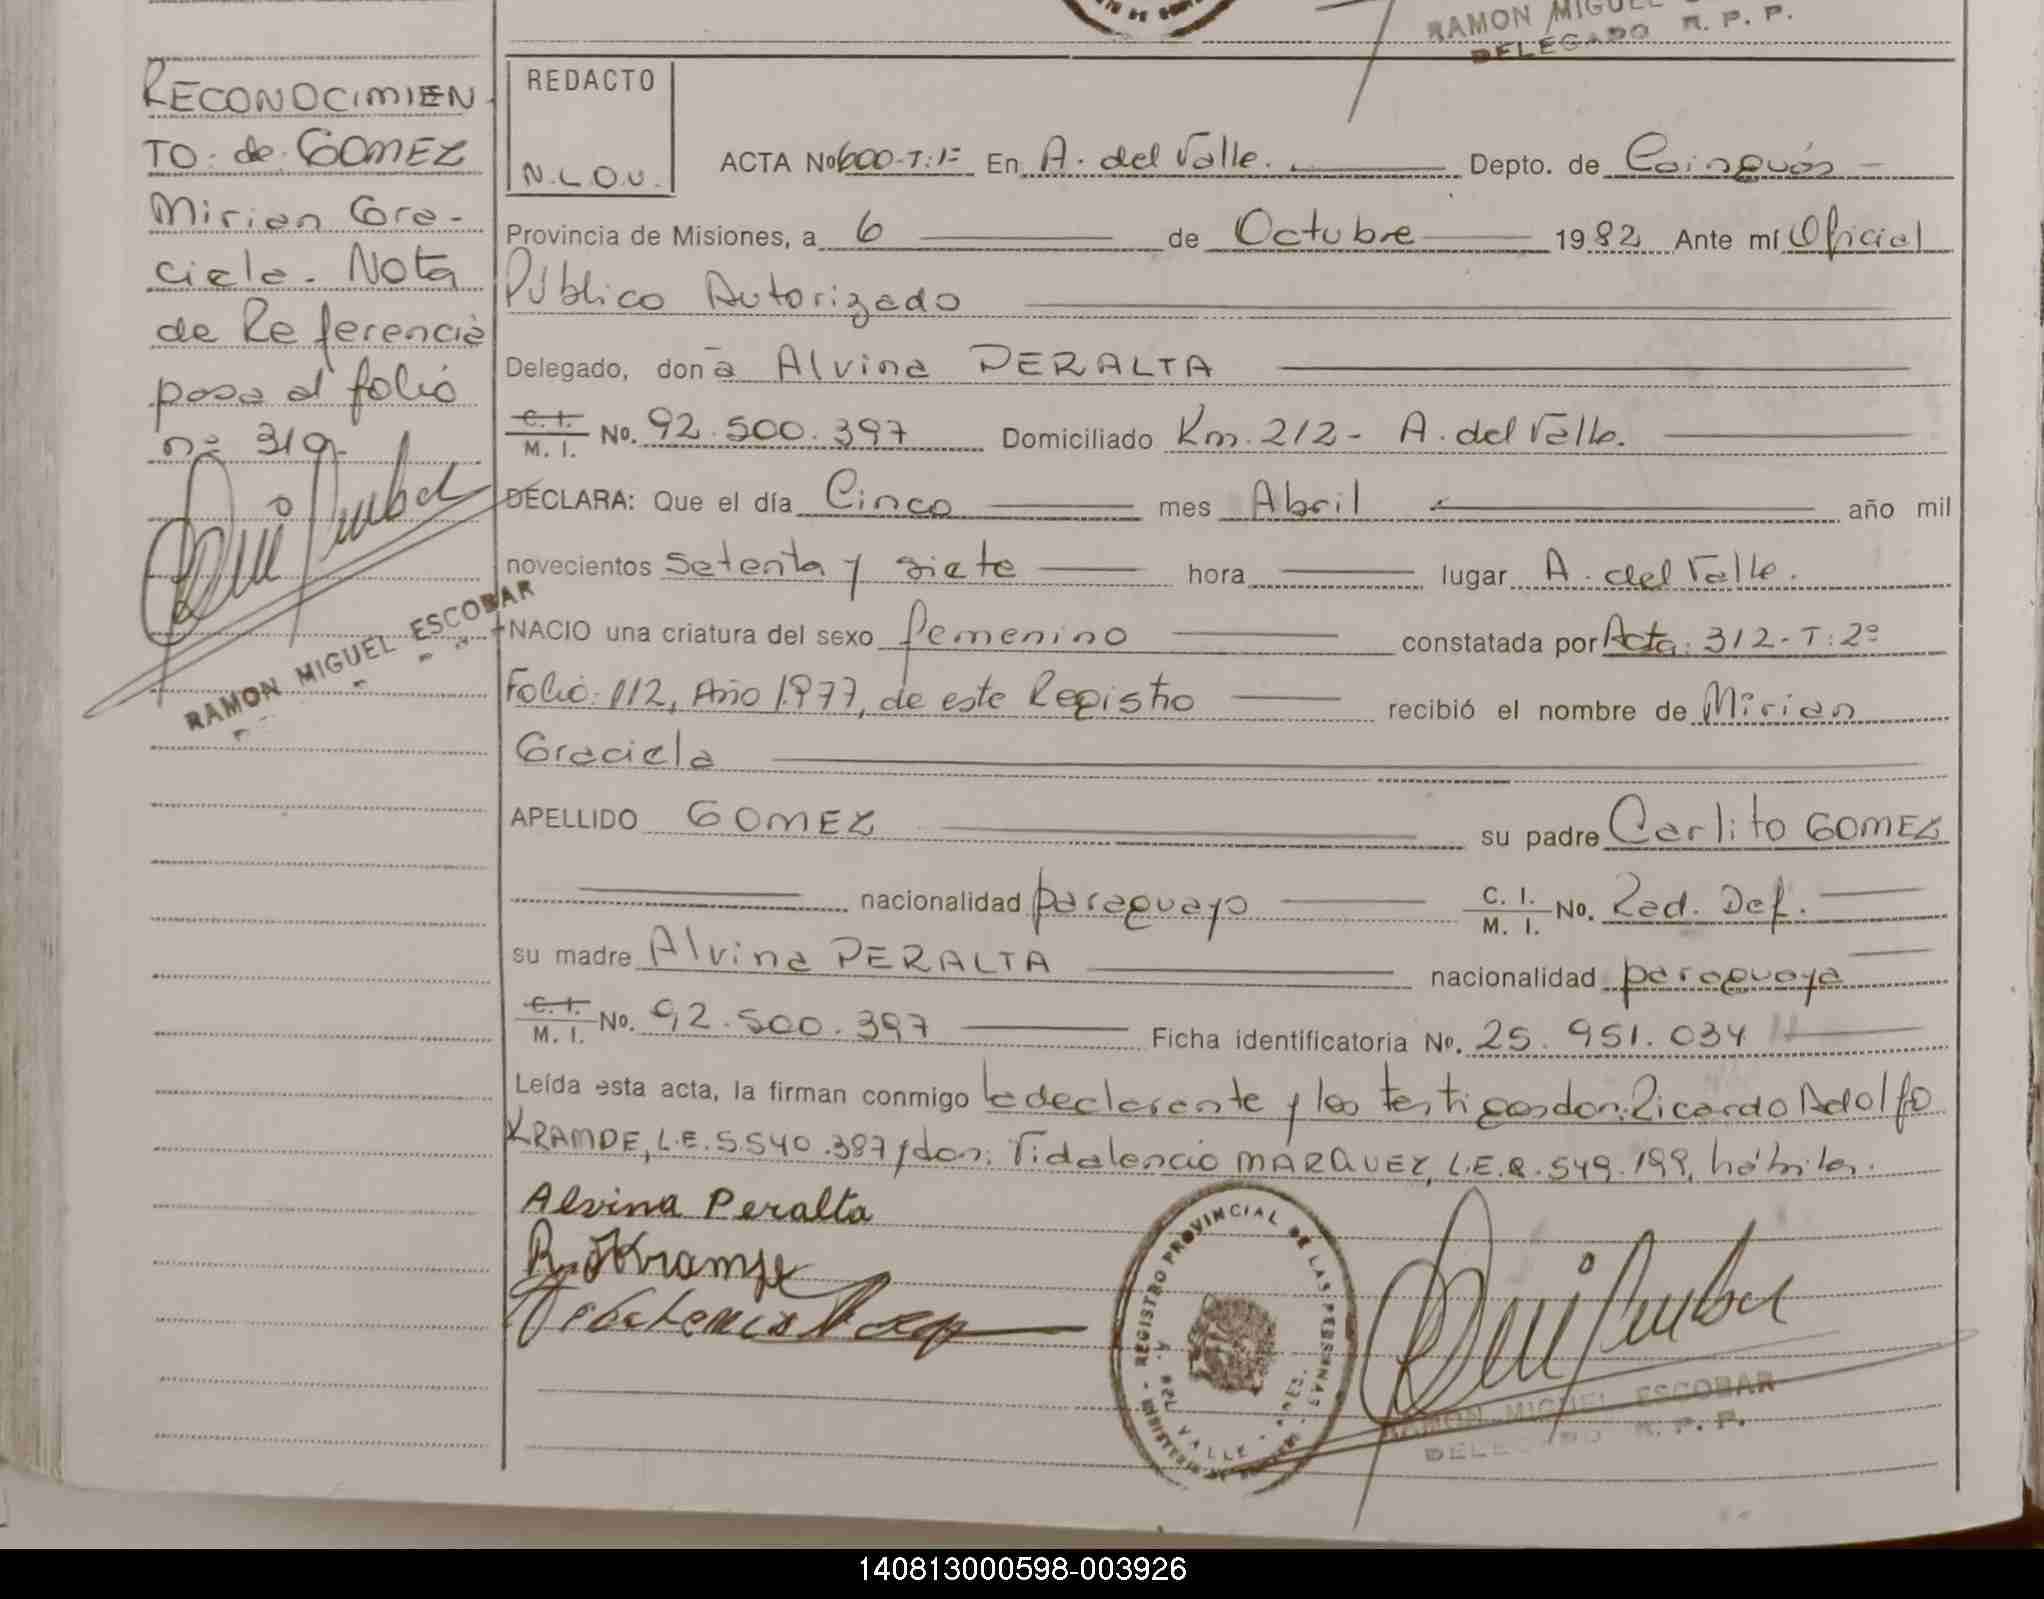 RAMON MIGUEL
DELEGADO R. P. P.
RECONOCIMIEN
TO. de. GOMEZ
Mirian Gra-
ciela. Nota
de Referencia
pasa al folio
nº 319.
RAMON MIGUEL ESCOBAR
REDACTO
N.L.O.V.
ACTA Nº 600-T:1º En A. del Valle. Depto. de Cainguás
Provincia de Misiones, a 6 de Octubre 1982 Ante mí Oficial
Público Autorizado
Delegado, doña Alvina PERALTA
C. I.
M. I. No. 92.500.397 Domiciliado Km. 212- A. del Valle.
DECLARA: Que el día Cinco mes Abril año mil
novecientos setenta y siete hora lugar A. del Valle.
NACIO una criatura del sexo femenino constatada por Acta: 312-T:2º
Folio: 112, Año 1977, de este Registro recibió el nombre de Mirian
Graciela
APELLIDO GOMEZ su padre Carlito GOMEZ
nacionalidad paraguayo C. I.
M. I. No. Rad. Def.
su madre Alvina PERALTA nacionalidad paraguaya
C. I.
M. I. No. 92.500.397 Ficha identificatoria No. 25.951.034
Leída esta acta, la firman conmigo la declarante y los testigos don: Ricardo Adolfo
KRAMPE, L.E. 5.540.387 y don: Vidalencio MARQUEZ, L.E. 8.549.199, hábiles.
Alvina Peralta
R. A Krampe
REGISTRO PROVINCIAL DE LAS PERSONAS
A. DEL VALLE
RAMON MIGUEL ESCOBAR
DELEGADO R. P. P.
140813000598-003926